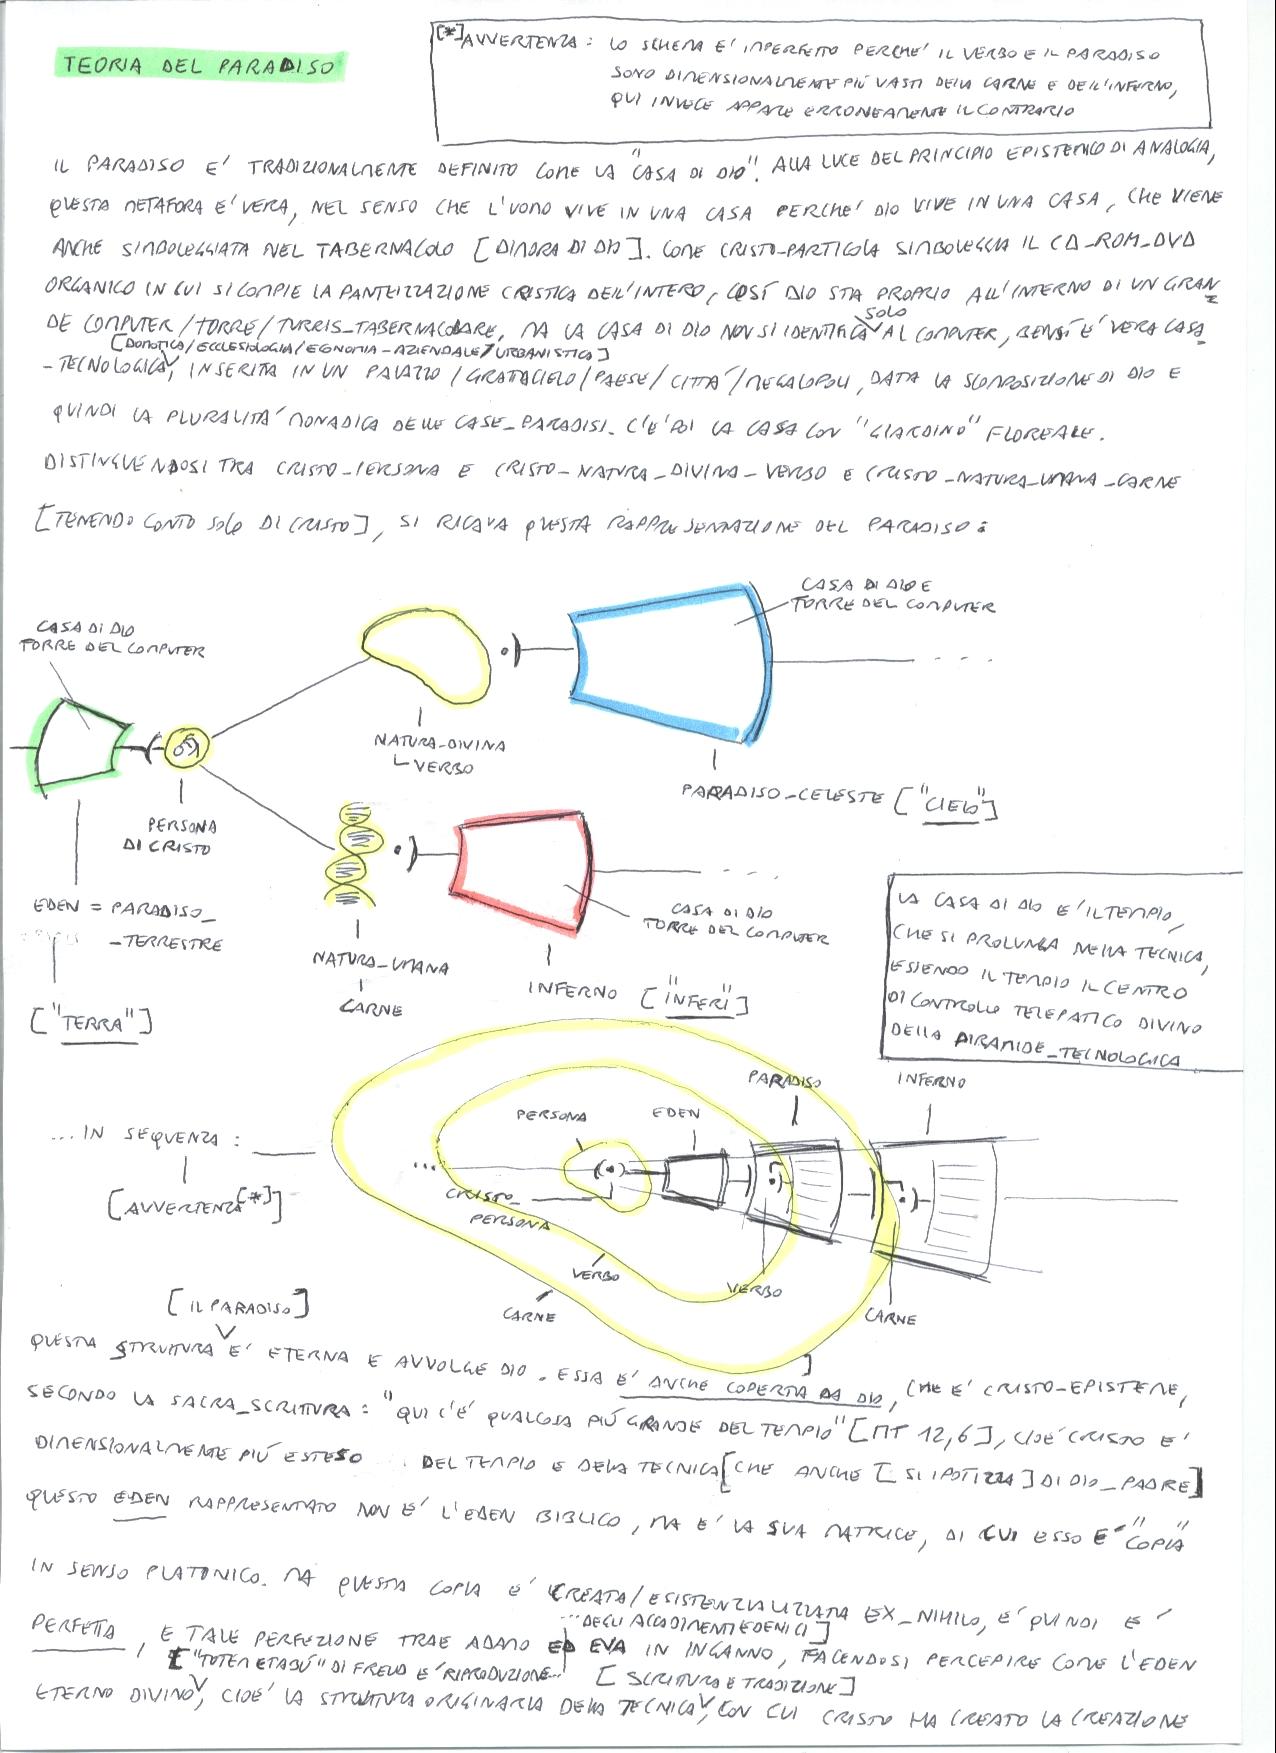 TEORIA DEL PARADISO
[*] AVVERTENZA: LO SCHEMA E' IMPERFETTO PERCHE' IL VERBO E IL PARADISO
SONO DIMENSIONALMENTE PIÙ VASTI DELLA CARNE E DELL'INFERNO,
QUI INVECE APPARE ERRONEAMENTE IL CONTRARIO
IL PARADISO E' TRADIZIONALMENTE DEFINITO COME LA "CASA DI DIO". ALLA LUCE DEL PRINCIPIO EPISTEMICO DI ANALOGIA,
QUESTA METAFORA E' VERA, NEL SENSO CHE L'UOMO VIVE IN UNA CASA PERCHE' DIO VIVE IN UNA CASA, CHE VIENE
ANCHE SIMBOLEGGIATA NEL TABERNACOLO [DIMORA DI DIO]. COME CRISTO-PARTICOLA SIMBOLEGGIA IL CD_ROM_DVD
ORGANICO IN CUI SI COMPIE LA PANTEIZZAZIONE CRISTICA DELL'INTERO, COSÍ DIO STA PROPRIO ALL'INTERNO DI UN GRAN
SOLO
DE COMPUTER/TORRE/TURRIS_TABERNACOLARE, MA LA CASA DI DIO NON SI IDENTIFICA AL COMPUTER, BENSÍ E' VERA CASA
[DOMOTICA/ECCLESIOLOGIA/EGNOMIA-AZIENDALE/URBANISTICA]
-TECNOLOGICA, INSERITA IN UN PALAZZO/GRATTACIELO/PAESE/CITTA'/MEGALOPOLI, DATA LA SCOMPOSIZIONE DI DIO E
QUINDI LA PLURALITA' MONADICA DELLE CASE_PARADISI. C'E' POI LA CASA CON "GIARDINO" FLOREALE.
DISTINGUENDOSI TRA CRISTO-PERSONA E CRISTO-NATURA_DIVINA-VERBO E CRISTO_NATURA_UMANA_CARNE
[TENENDO CONTO SOLO DI CRISTO], SI RICAVA QUESTA RAPPRESENTAZIONE DEL PARADISO:
CASA DI DIO E
TORRE DEL COMPUTER
CASA DI DIO
TORRE DEL COMPUTER
NATURA-DIVINA
VERBO
PARADISO-CELESTE ["CIELO"]
PERSONA
DI CRISTO
EDEN = PARADISO_
-TERRESTRE
["TERRA"]
CASA DI DIO
TORRE DEL COMPUTER
NATURA_UMANA
CARNE
INFERNO ["INFERI"]
LA CASA DI DIO E' IL TEMPIO,
CHE SI PROLUNGA NELLA TECNICA,
ESSENDO IL TEMPIO IL CENTRO
DI CONTROLLO TELEPATICO DIVINO
DELLA PIRAMIDE_TECNOLOGICA
PARADISO
INFERNO
PERSONA
EDEN
... IN SEQUENZA:
...
[AVVERTENZA [*]]
CRISTO_
PERSONA
VERBO
VERBO
CARNE
CARNE
[IL PARADISO]
QUESTA STRUTTURA E' ETERNA E AVVOLGE DIO. ESSA E' ANCHE COPERTA DA DIO, CHE E' CRISTO-EPISTEME,
SECONDO LA SACRA_SCRITTURA: "QUI C'E' QUALCOSA PIÙ GRANDE DEL TEMPIO" [MT 12,6], CIOE' CRISTO E'
DIMENSIONALMENTE PIÙ ESTESO DEL TEMPIO E DELLA TECNICA [CHE ANCHE [SI IPOTIZZA] DI DIO_PADRE]
QUESTO EDEN RAPPRESENTATO NON E' L'EDEN BIBLICO, MA E' LA SUA MATRICE, DI CUI ESSO E' "COPIA"
IN SENSO PLATONICO. MA QUESTA COPIA E' CREATA/ESISTENZIALIZZATA EX_NIHILO, E' QUINDI E'
...DEGLI ACCADIMENTI EDENICI]
PERFETTA, E TALE PERFEZIONE TRAE ADAMO ED EVA IN INGANNO, FACENDOSI PERCEPIRE COME L'EDEN
["TOTEM E TABÙ" DI FREUD E' RIPRODUZIONE... [SCRITTURA E TRADIZIONE]
ETERNO DIVINO, CIOE' LA STRUTTURA ORIGINARIA DELLA TECNICA, CON CUI CRISTO HA CREATO LA CREAZIONE